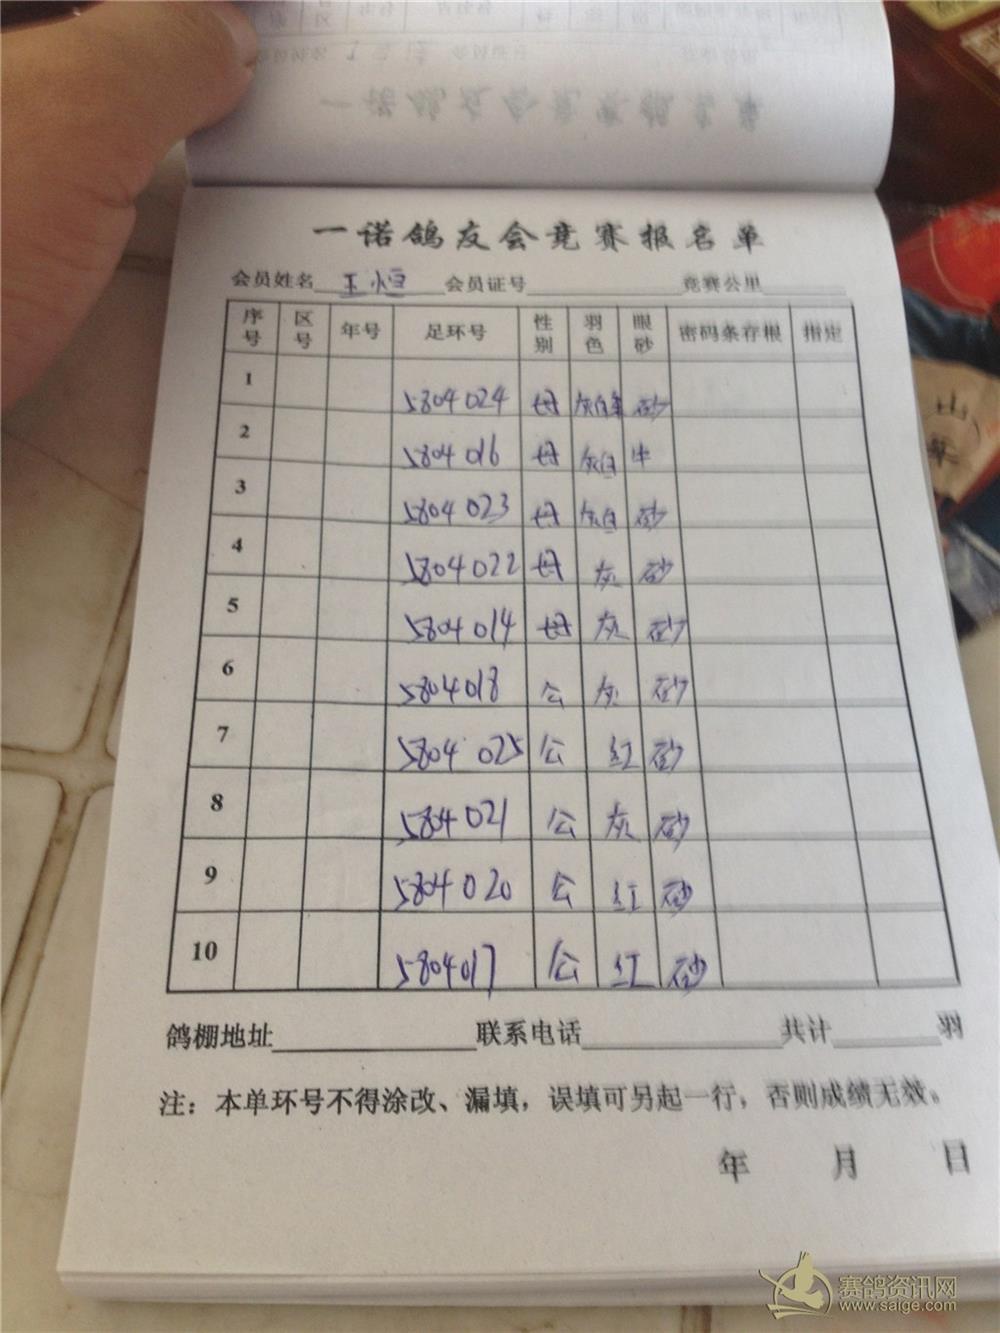 一诺鸽友会竞赛报名单
会员姓名 王恒 会员证号 竞赛公里
序号 区号 年号 足环号 性别 羽色 眼砂 密码条存根 指定
1 5804024 母 灰白条 砂
2 5804016 母 灰白 牛
3 5804023 母 灰白 砂
4 5804022 母 灰 砂
5 5804014 母 灰 砂
6 5804018 公 灰 砂
7 5804025 公 红 砂
8 5804021 公 灰 砂
9 5804020 公 红 砂
10 5804017 公 红 砂
鸽棚地址 联系电话 共计 羽
注：本单环号不得涂改、漏填，误填可另起一行，否则成绩无效。
年 月 日
赛鸽资讯网
www.saige.com